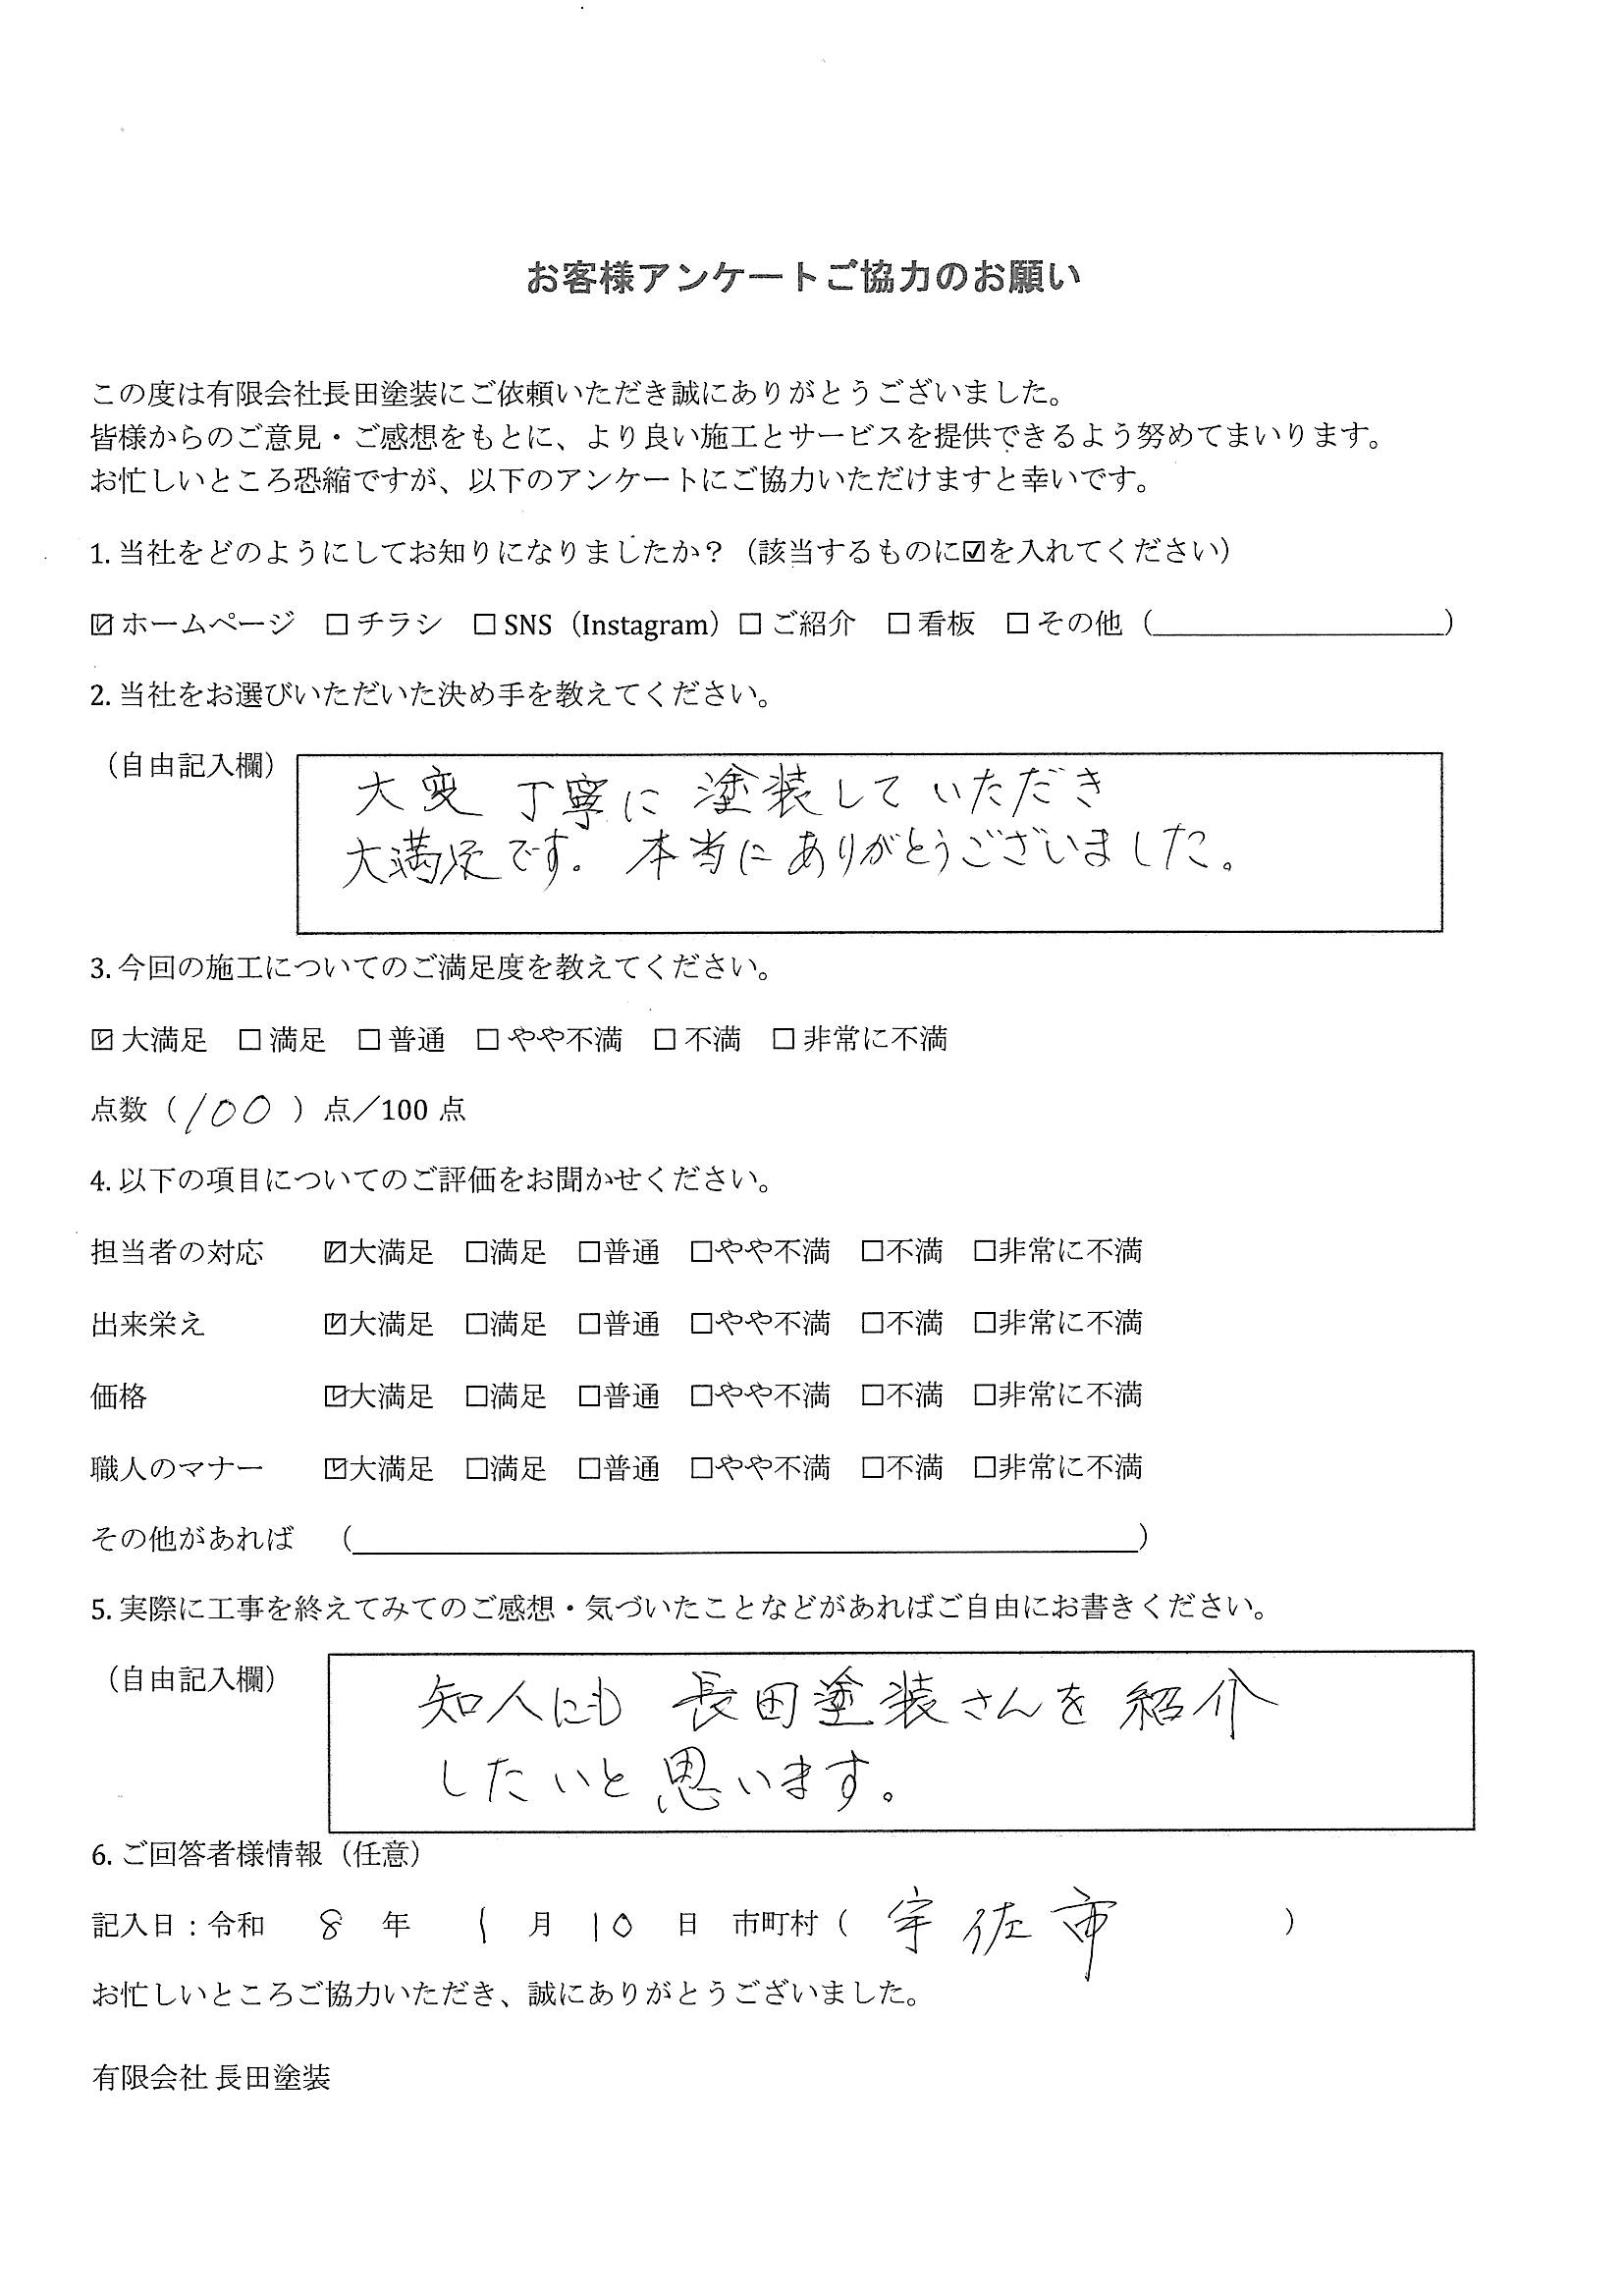 お客様アンケートご協力のお願い
この度は有限会社長田塗装にご依頼いただき誠にありがとうございました。
皆様からのご意見・ご感想をもとに、より良い施工とサービスを提供できるよう努めてまいります。
お忙しいところ恐縮ですが、以下のアンケートにご協力いただけますと幸いです。
1. 当社をどのようにしてお知りになりましたか？（該当するものに☑を入れてください）
☑ ホームページ ☐ チラシ ☐ SNS（Instagram）☐ ご紹介 ☐ 看板 ☐ その他（　　　　　）
2. 当社をお選びいただいた決め手を教えてください。
（自由記入欄）
大変 丁寧に 塗装して いただき
大満足です. 本当に ありがとうございました。
3. 今回の施工についてのご満足度を教えてください。
☑ 大満足 ☐ 満足 ☐ 普通 ☐ やや不満 ☐ 不満 ☐ 非常に不満
点数（100）点／100 点
4. 以下の項目についてのご評価をお聞かせください。
担当者の対応 ☑大満足 ☐満足 ☐普通 ☐やや不満 ☐不満 ☐非常に不満
出来栄え ☑大満足 ☐満足 ☐普通 ☐やや不満 ☐不満 ☐非常に不満
価格 ☑大満足 ☐満足 ☐普通 ☐やや不満 ☐不満 ☐非常に不満
職人のマナー ☑大満足 ☐満足 ☐普通 ☐やや不満 ☐不満 ☐非常に不満
その他があれば （　　　　　）
5. 実際に工事を終えてみてのご感想・気づいたことなどがあればご自由にお書きください。
（自由記入欄）
知人にも 長田塗装さんを 紹介
したいと 思います。
6. ご回答者様情報（任意）
記入日：令和 8 年 1 月 10 日 市町村（ 宇佐市 ）
お忙しいところご協力いただき、誠にありがとうございました。
有限会社 長田塗装